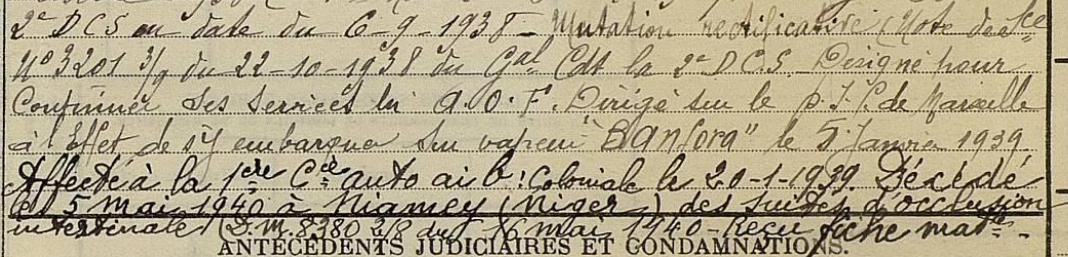 2e DCS en date du 6-9-1938 - Mutation rectificative (Note de Sce
N° 3201 3/9 du 22-10-1938 du Gal Cdt la 2e D.C.S. Désigné pour
Continuer ses services en A.O.F. Dirigé sur le D.I.C. de Marseille
à l'Effet de s'y embarquer sur vapeur "BANfora" le 5 Janvier 1939.
Affecté à la 1ère Cie auto aib: Coloniale le 20-1-1939. Décédé
le 5 mai 1940 à Niamey (Niger) des suites d'occlusion
intestinale (D.M. 8380 3/8 du 16 mai 1940 - Reçu fiche matle -
ANTÉCÉDENTS JUDICIAIRES ET CONDAMNATIONS.